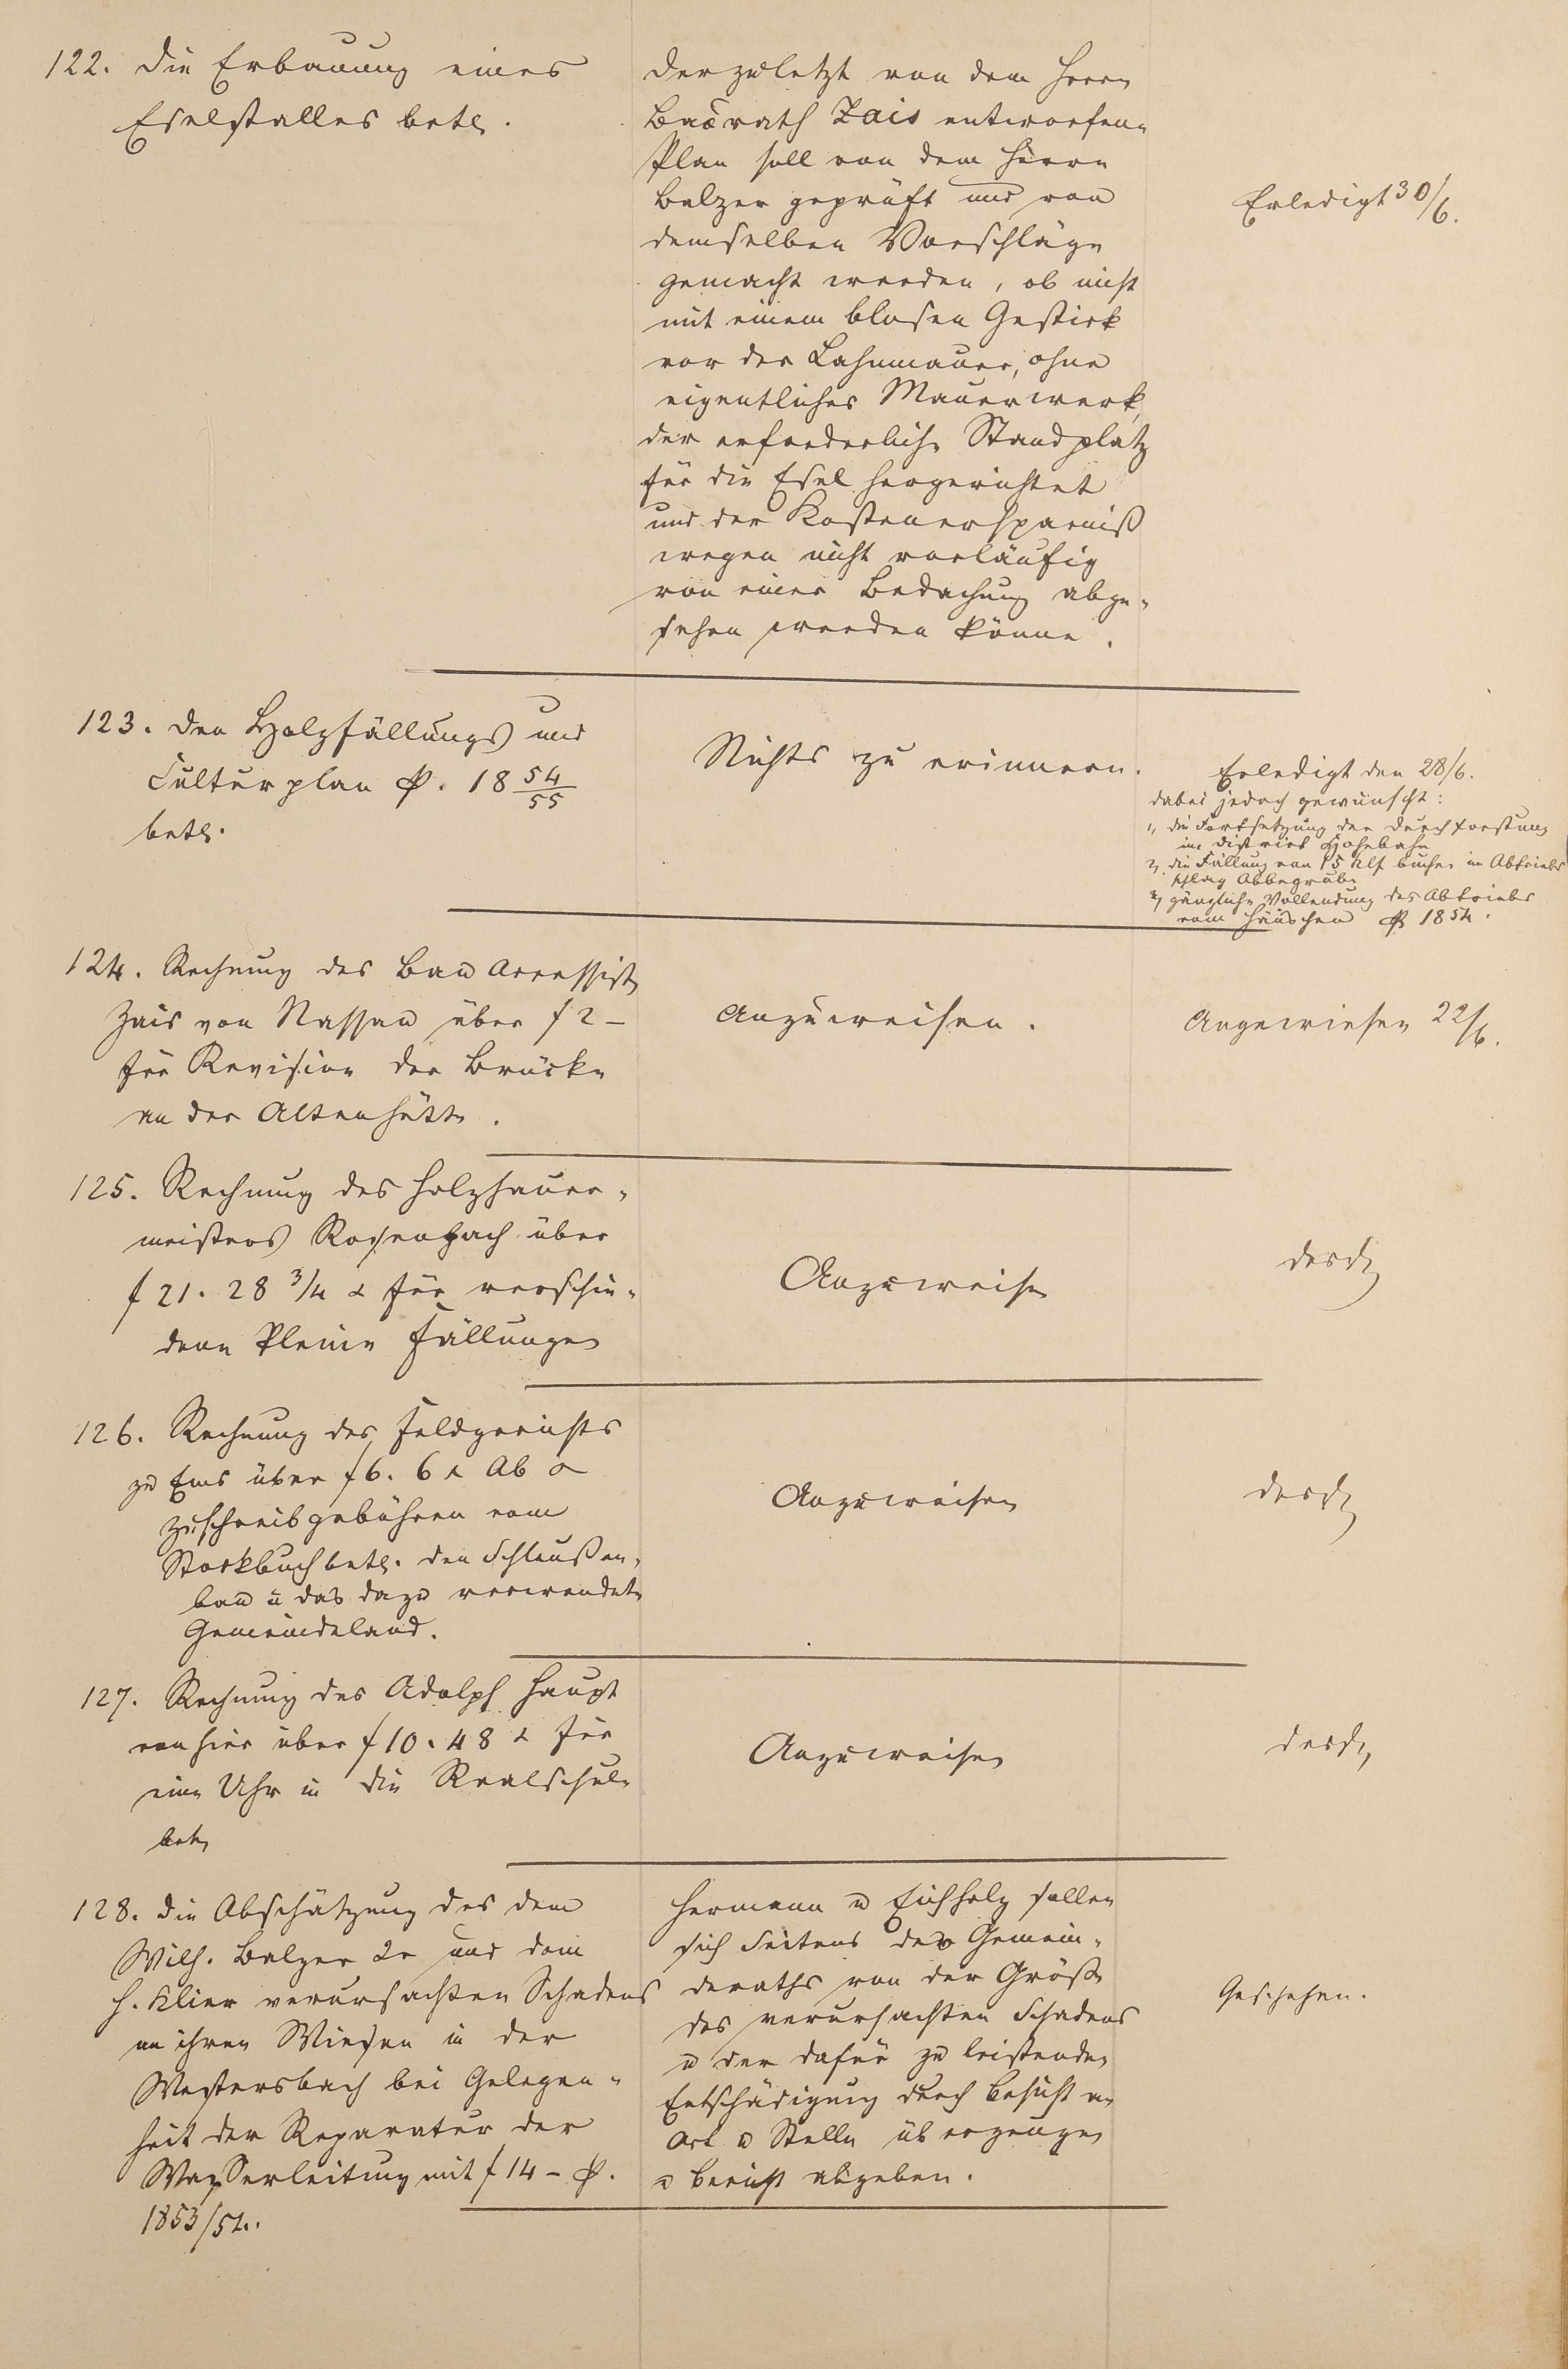 122. die Erbauung eines
Eselstalles betr.
der zuletzt von dem Herrn
Baurath Zais entworfene
Plan soll von dem Herrn
Balzer geprüft und von
demselben Vorschläge
gemacht werden, ob nicht
mit einem blosen Gestick
vor der Lahnmauer, ohne
eigentliches Mauerwerk,
der erforderliche Standplatz
für die Esel hergerichtet
und der Kostenersparniß
wegen nicht vorläufig
von einer Bedachung abge-
sehen werden könne.
Erledigt 30/6.
123. den Holzfällungs und
Culturplan p. 18 54/55
betr.
Nichts zu erinnern.
Erledigt den 28/6.
dabei jedoch gewünscht:
1, die Fortsetzung der Durchforstung
im District Hohebahn
2, die Fällung von 15 Klf buchen im Abtriebs
schlag Abbegrube
3, gänzliche Vollendung des Abtriebes
vom Häuschen p 1854.
124. Rechnung des Bau Accessist
Zais von Nassau über f 2 –
für Revision der Brücke
an der Altenhütte.
Anzuweisen.
Angewiesen 22/6.
125. Rechnung des Holzhauer-
meisters Rosenbach über
f 21. 28 3/4 x für verschie-
dene kleine Fällungen
Anzuweisen
desgl
126. Rechnung des Feldgerichts
zu Ems über f 6. 6 x Ab &
zuschreibgebühren vom
Stockbuch betr. den Schleußen-
bau u das dazu verwendete
Gemeindeland.
Anzuweisen
desgl
127. Rechnung des Adolph Haupt
von hier über f 10. 48 x für
eine Uhr in die Realschule
betr
Anzuweisen
desgl
128. die Abschätzung des dem
Wilh. Balzer 2r und dem
H. Klier verursachten Schadens
an ihren Wiesen in der
Westersbach bei Gelegen-
heit der Reparatur der
Wasserleitung mit f 14 – p.
1853/54.
Hermann u Eichholz sollen
sich Seitens des Gemein-
deraths von der Größe
des verursachten Schadens
u der dafür zu leistenden
Entschädigung durch Besicht an
Ort u Stelle überzeugen
u Bericht abgeben.
Geschehen.